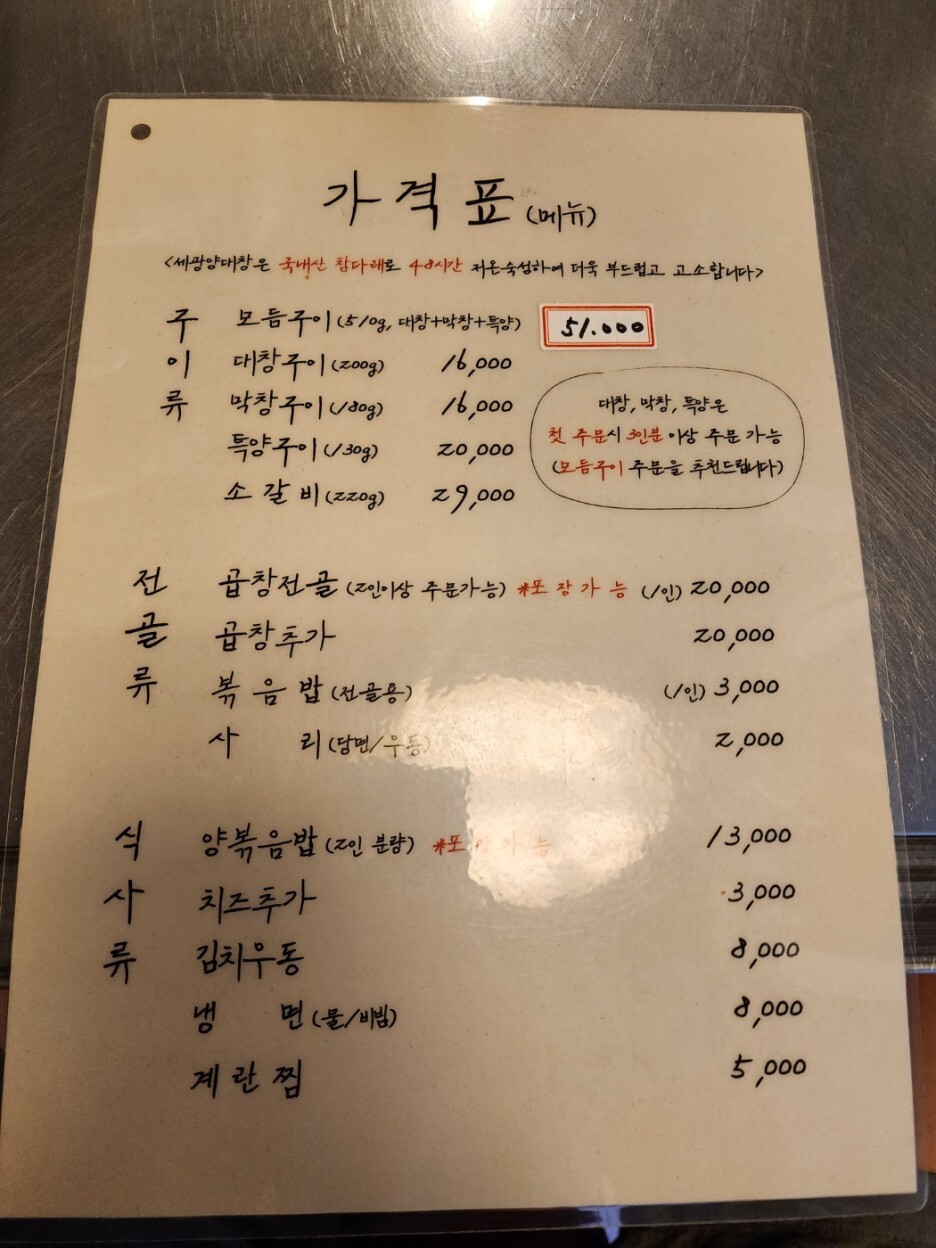 가격표 (메뉴)
<세광양대창은 국내산 참다래로 48시간 저온숙성하여 더욱 부드럽고 고소합니다>
구이류
모듬구이 (510g, 대창+막창+특양) 51.000
대창구이 (200g) 16,000
막창구이 (180g) 16,000
특양구이 (130g) 20,000
소갈비 (220g) 29,000
대창, 막창, 특양은
첫 주문시 3인분 이상 주문 가능
(모듬구이 주문을 추천드립니다)
전골류
곱창전골 (2인이상 주문가능) *포장가능 (1인) 20,000
곱창추가 20,000
볶음밥 (전골용) (1인) 3,000
사리 (당면/우동) 2,000
식사류
양볶음밥 (2인 분량) *포장가능 13,000
치즈추가 3,000
김치우동 8,000
냉면 (물/비빔) 8,000
계란찜 5,000